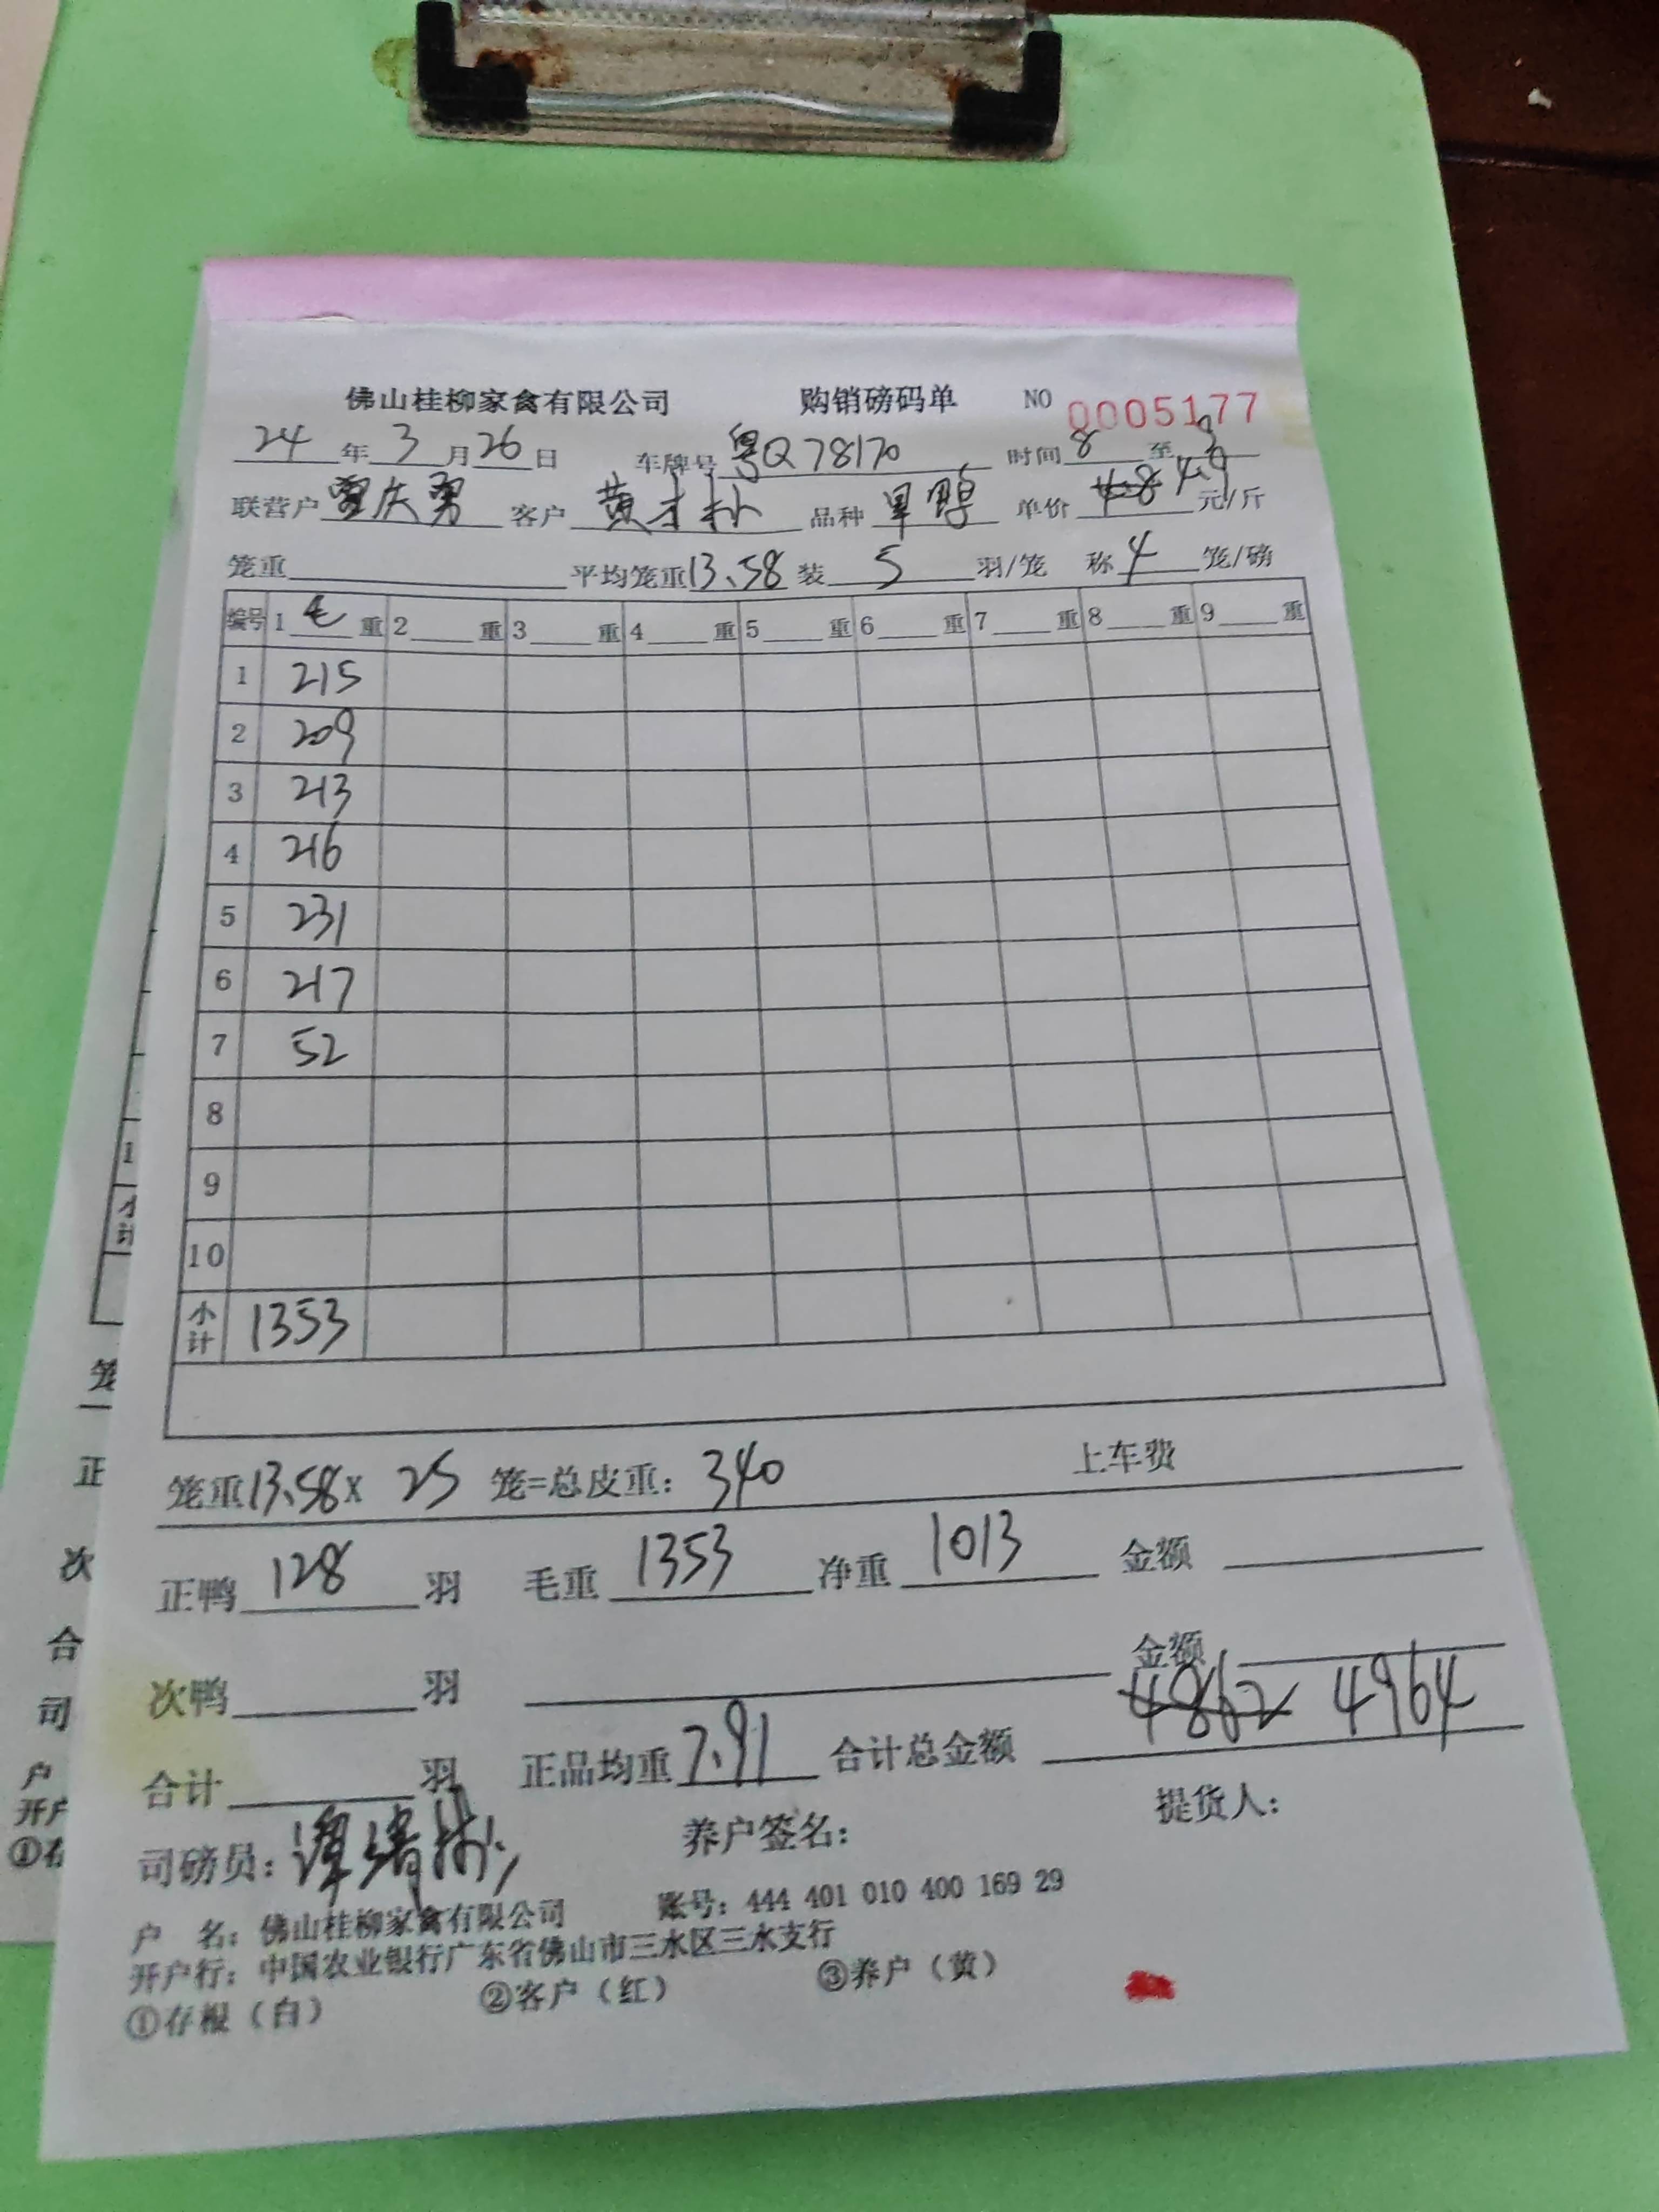 佛山桂柳家禽有限公司 购销磅码单 NO 0005177
24年3月26日 车牌号粤Q78170 时间8至9
联营户 庆勇 客户 黄 品种 单价 4.8 4.9 元/斤
笼重 平均笼重13.58 装 5 羽/笼 称 4 笼/磅
编号 1 毛 重 2 重 3 重 4 重 5 重 6 重 7 重 8 重 9 重
1 215
2 209
3 213
4 216
5 231
6 217
7 52
8
9
10
小计 1353
笼重13.58X 25 笼=总皮重：340 上车费
正鸭 128 羽 毛重 1353 净重 1013 金额
次鸭 羽 金额
合计 羽 正品均重 7.91 合计总金额 4862 4964
司磅员： 养户签名： 提货人：
户 名：佛山桂柳家禽有限公司 账号：444 401 010 400 169 29
开户行：中国农业银行广东省佛山市三水区三水支行
①存根（白） ②客户（红） ③养户（黄）